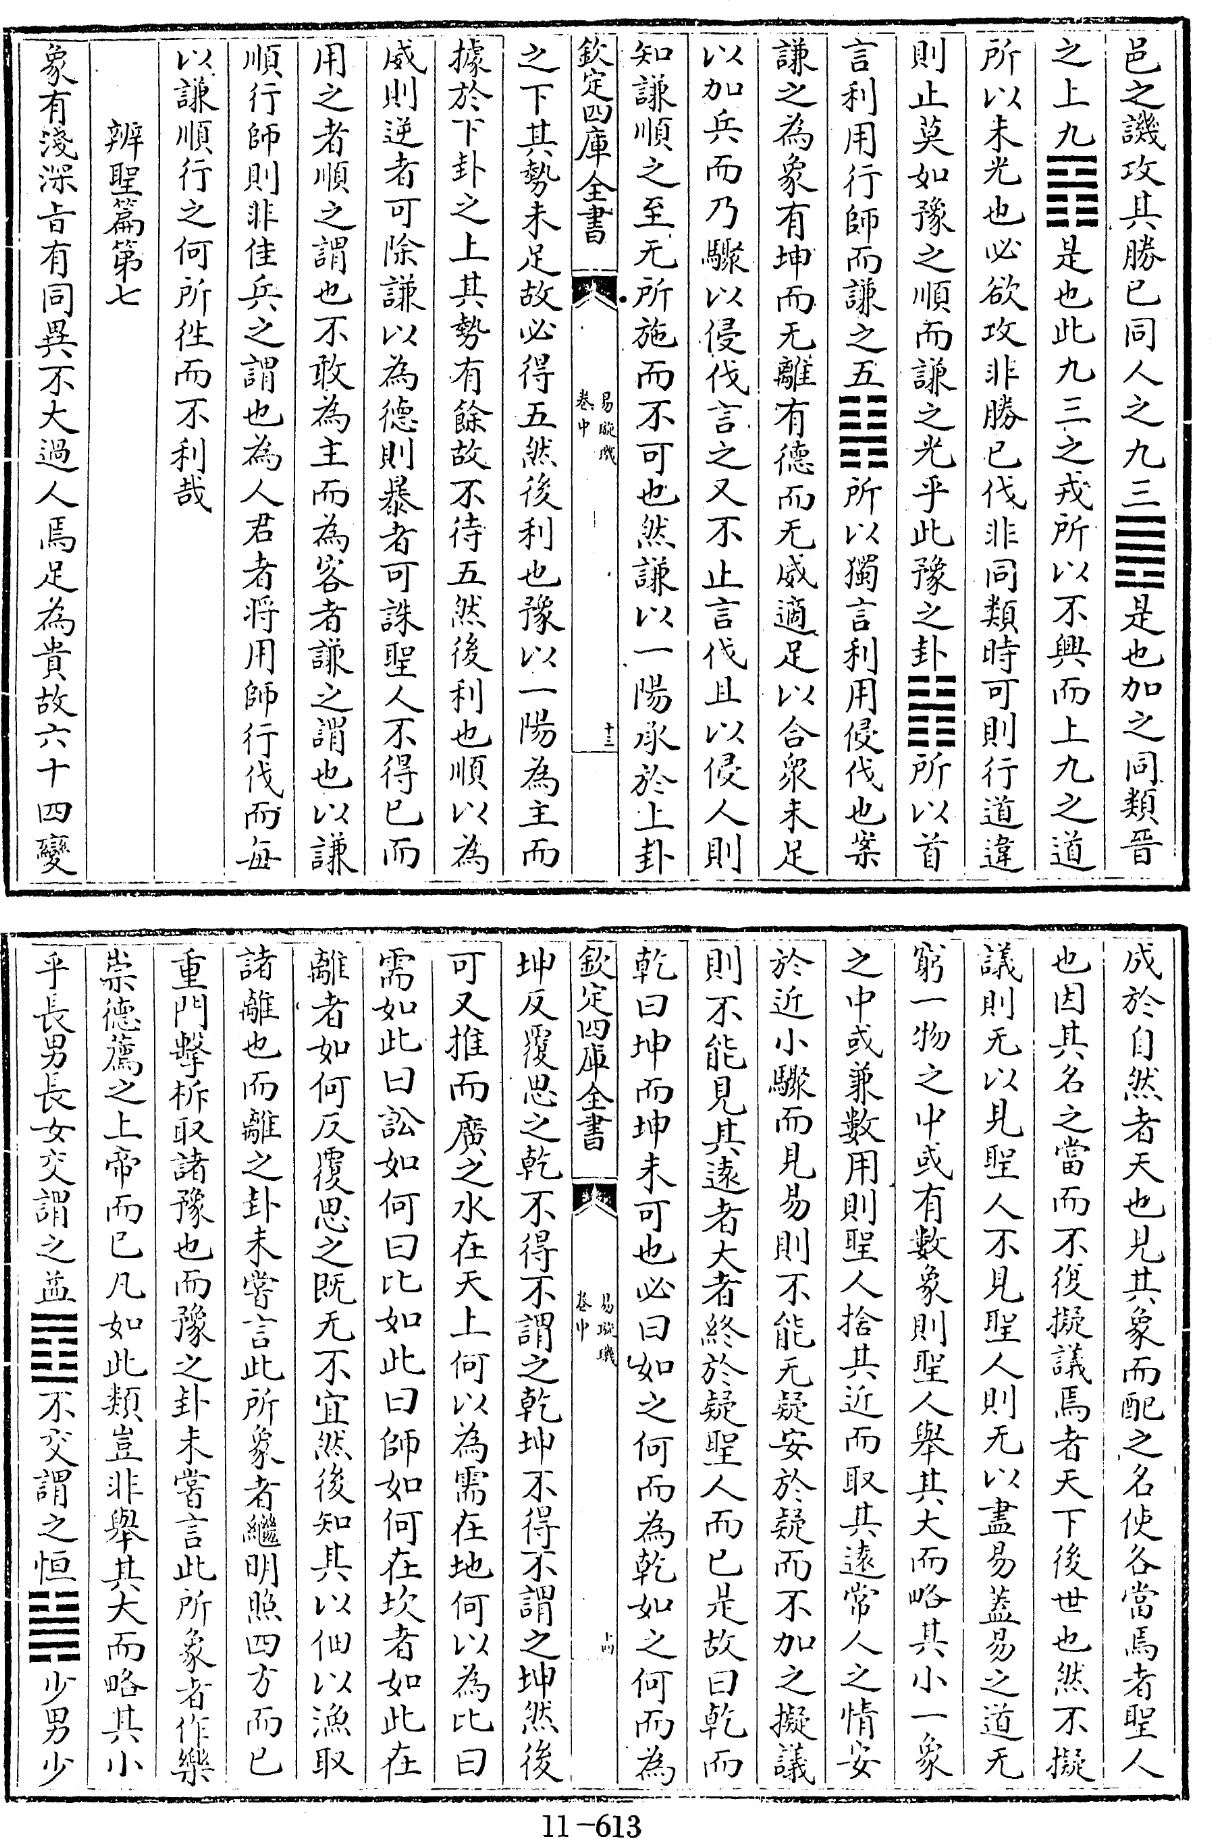 邑之譏攻其勝已同人之九三䷌是也加之同類晉
之上九䷢是也此九三之戎所以不興而上九之道
所以未光也必欲攻非勝已伐非同類時可則行道違
則止莫如豫之順而謙之光乎此豫之卦䷏所以首
言利用行師而謙之五䷎所以獨言利用侵伐也案
謙之為象有坤而无離有德而无威適足以合衆未足
以加兵而乃驟以侵伐言之又不止言伐且以侵人則
知謙順之至无所施而不可也然謙以一陽承於上卦
欽定四庫全書
易璇璣
卷中
十三
之下其勢未足故必得五然後利也豫以一陽為主而
據於下卦之上其勢有餘故不待五然後利也順以為
威則逆者可除謙以為德則暴者可誅聖人不得已而
用之者順之謂也不敢為主而為客者謙之謂也以謙
順行師則非佳兵之謂也為人君者将用師行伐而每
以謙順行之何所徃而不利哉
辨聖篇第七
象有淺深旨有同異不大過人焉足為貴故六十四變
成於自然者天也見其象而配之名使各當焉者聖人
也因其名之當而不復擬議焉者天下後世也然不擬
議則无以見聖人不見聖人則无以盡易蓋易之道无
窮一物之中或有數象則聖人舉其大而略其小一象
之中或兼數用則聖人捨其近而取其遠常人之情安
於近小驟而見易則不能无疑安於疑而不加之擬議
則不能見其遠者大者終於疑聖人而已是故曰乾而
乾曰坤而坤未可也必曰如之何而為乾如之何而為
欽定四庫全書
易璇璣
卷中
十四
坤反覆思之乾不得不謂之乾坤不得不謂之坤然後
可又推而廣之水在天上何以為需在地何以為比曰
需如此曰訟如何曰比如此曰師如何在坎者如此在
離者如何反覆思之既无不宜然後知其以佃以漁取
諸離也而離之卦未嘗言此所象者繼明照四方而已
重門擊柝取諸豫也而豫之卦未嘗言此所象者作樂
崇德薦之上帝而已凡如此類豈非舉其大而略其小
乎長男長女交謂之益䷩不交謂之恒䷟少男少
11-613